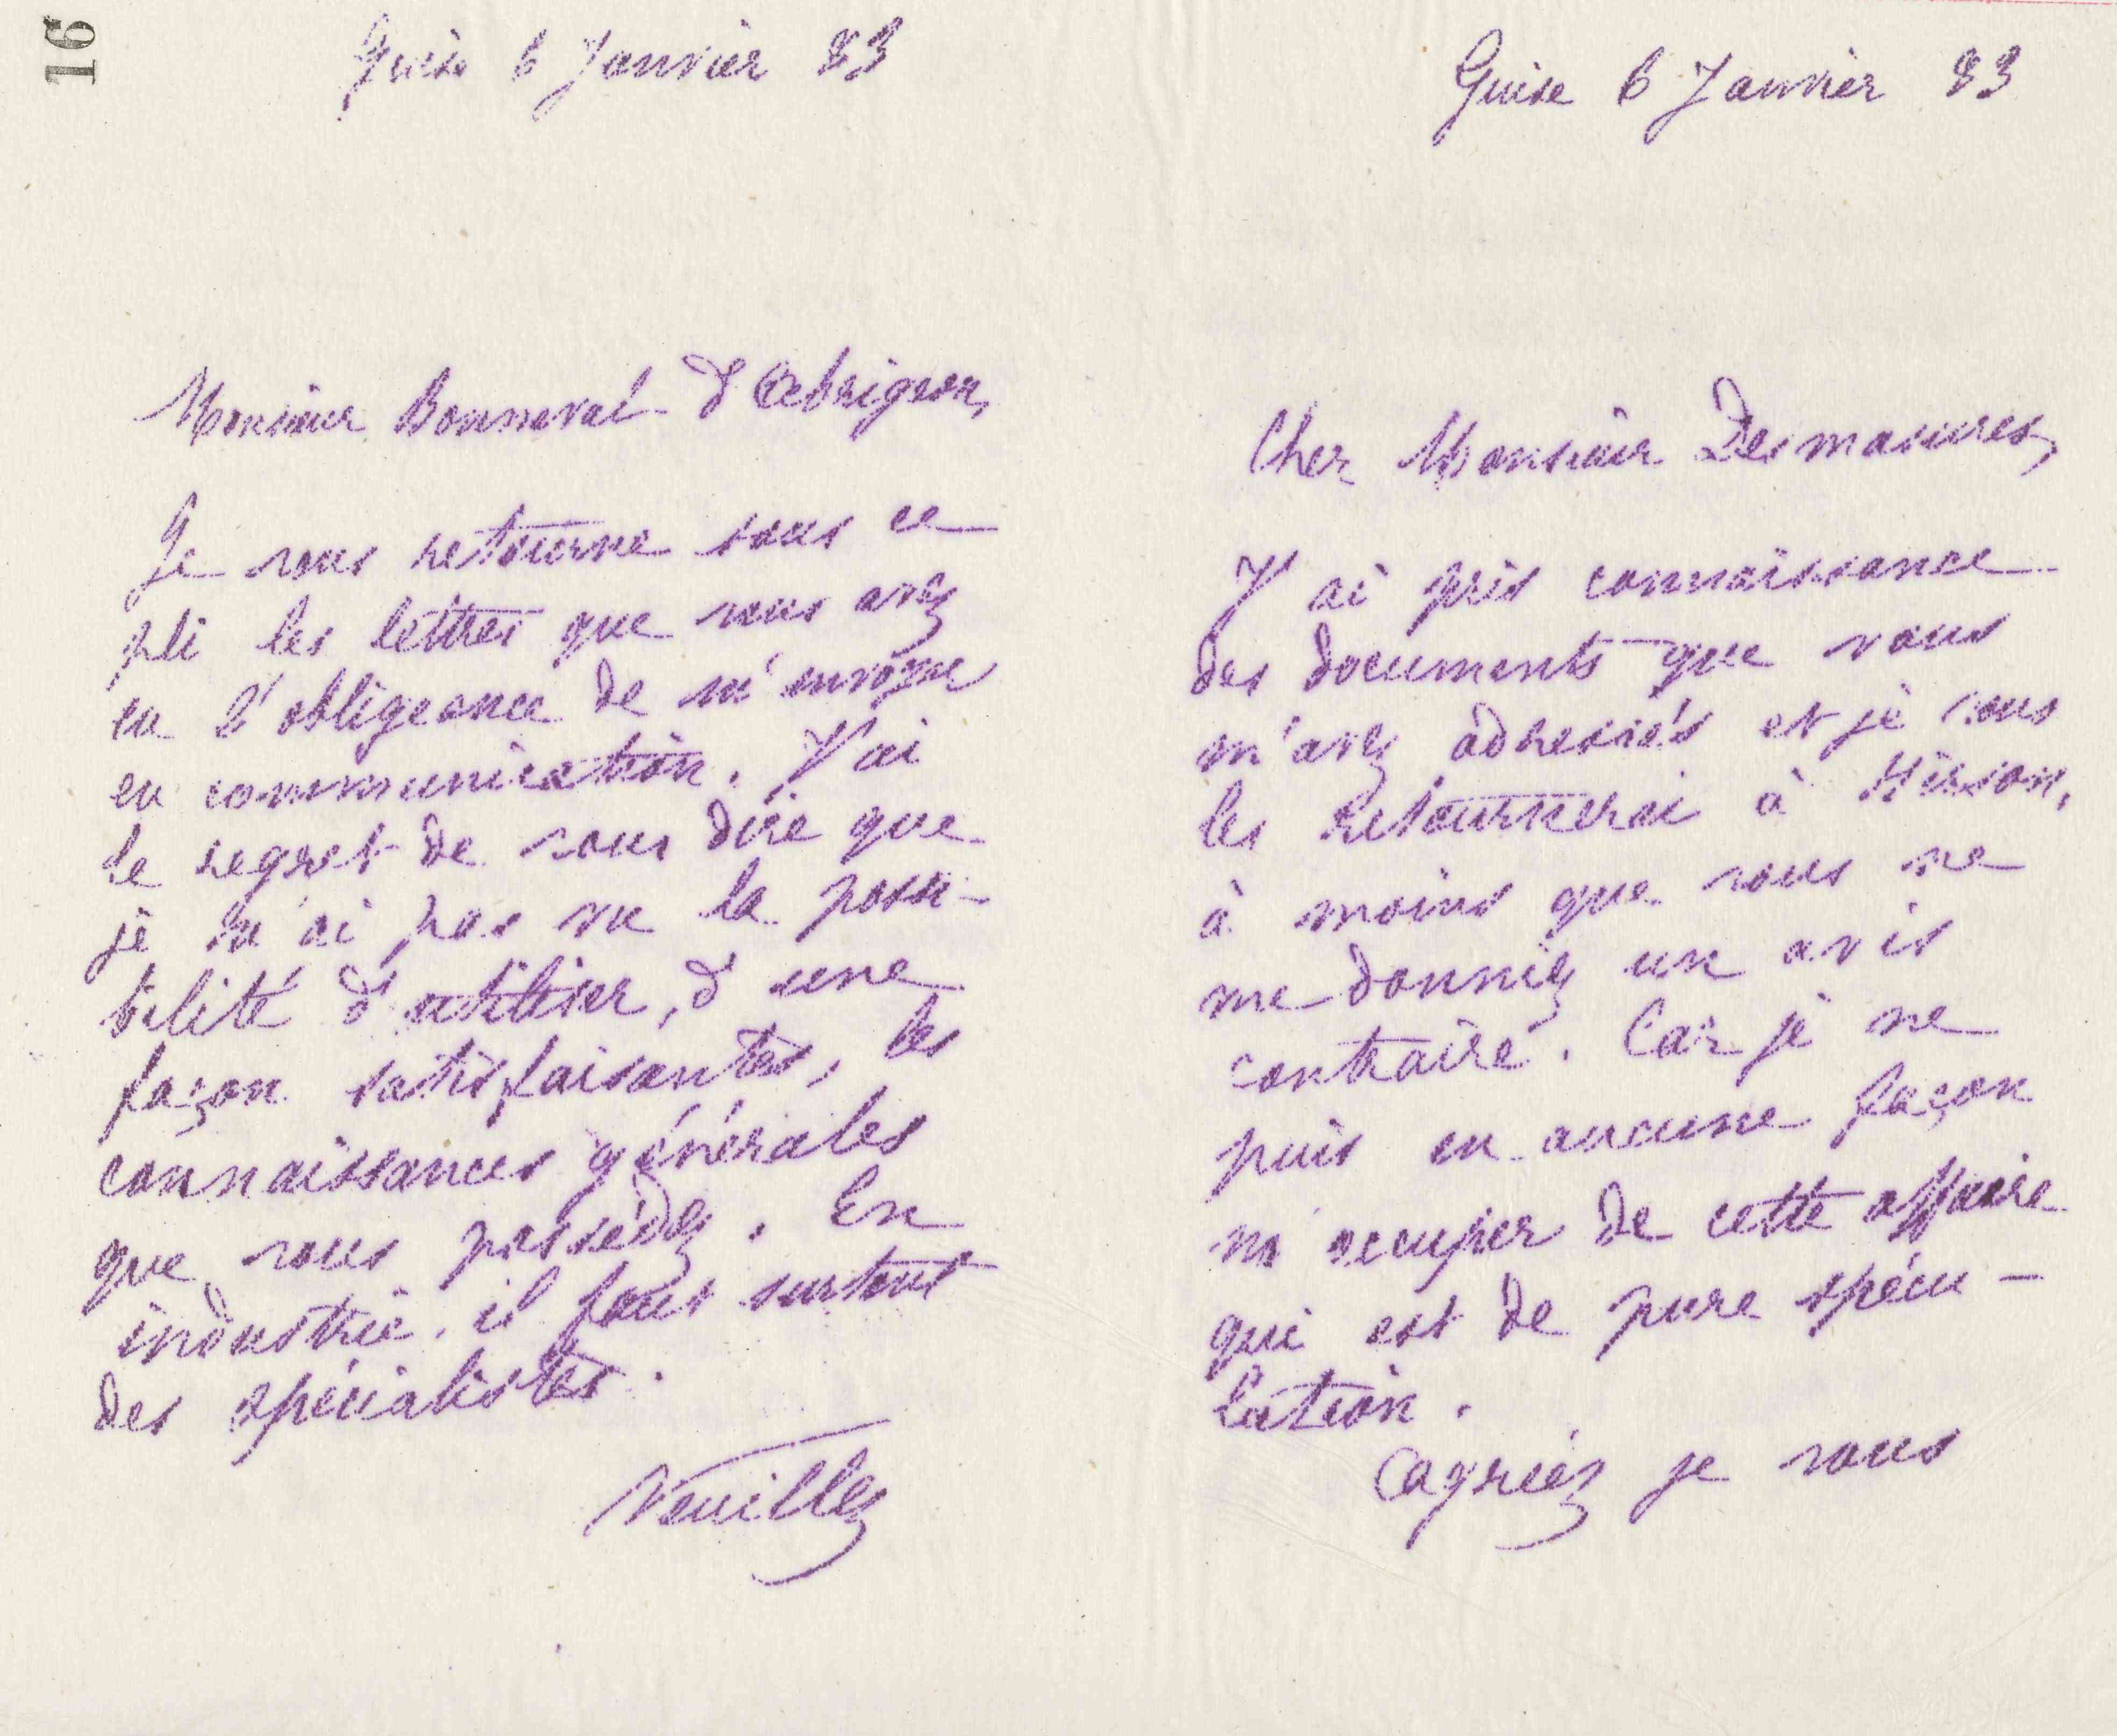 16
Guise 6 Janvier 83
Monsieur Bonneval d'Aebrigeon,
Je vous retourne sous ce
pli les lettres que vous avez
eu l'obligeance de m'envoyer
en communication. J'ai
le regret de vous dire que
je n'ai pas vu la possi-
bilité d'utiliser, d'une
façon satisfaisantes, les
connaissances générales
que vous possédez. En
industrie, il faut surtout
des spécialistes.
Veuillez
Guise 6 Janvier 83
Cher Monsieur Desmasures,
J'ai pris connaissance
des documents que vous
m'avez adressés et je vous
les retournerai à Hirson,
à moins que vous ne
me donniez un avis
contraire. Car je ne
puis en aucune façon
m'occuper de cette affaire
qui est de pure spécu-
lation.
Agréez je vous